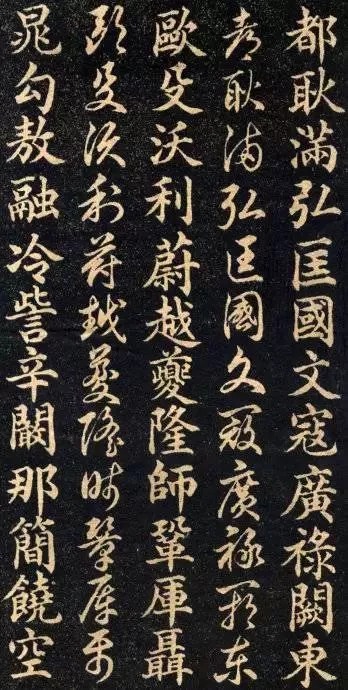 都耿滿弘匡國文寇廣祿闕東
都耿滿弘匡國文寇廣祿闕東
歐殳沃利蔚越夔隆師鞏厙聶
歐殳沃利蔚越夔隆師鞏厙聶
晁勾敖融冷訾辛闞那簡饒空